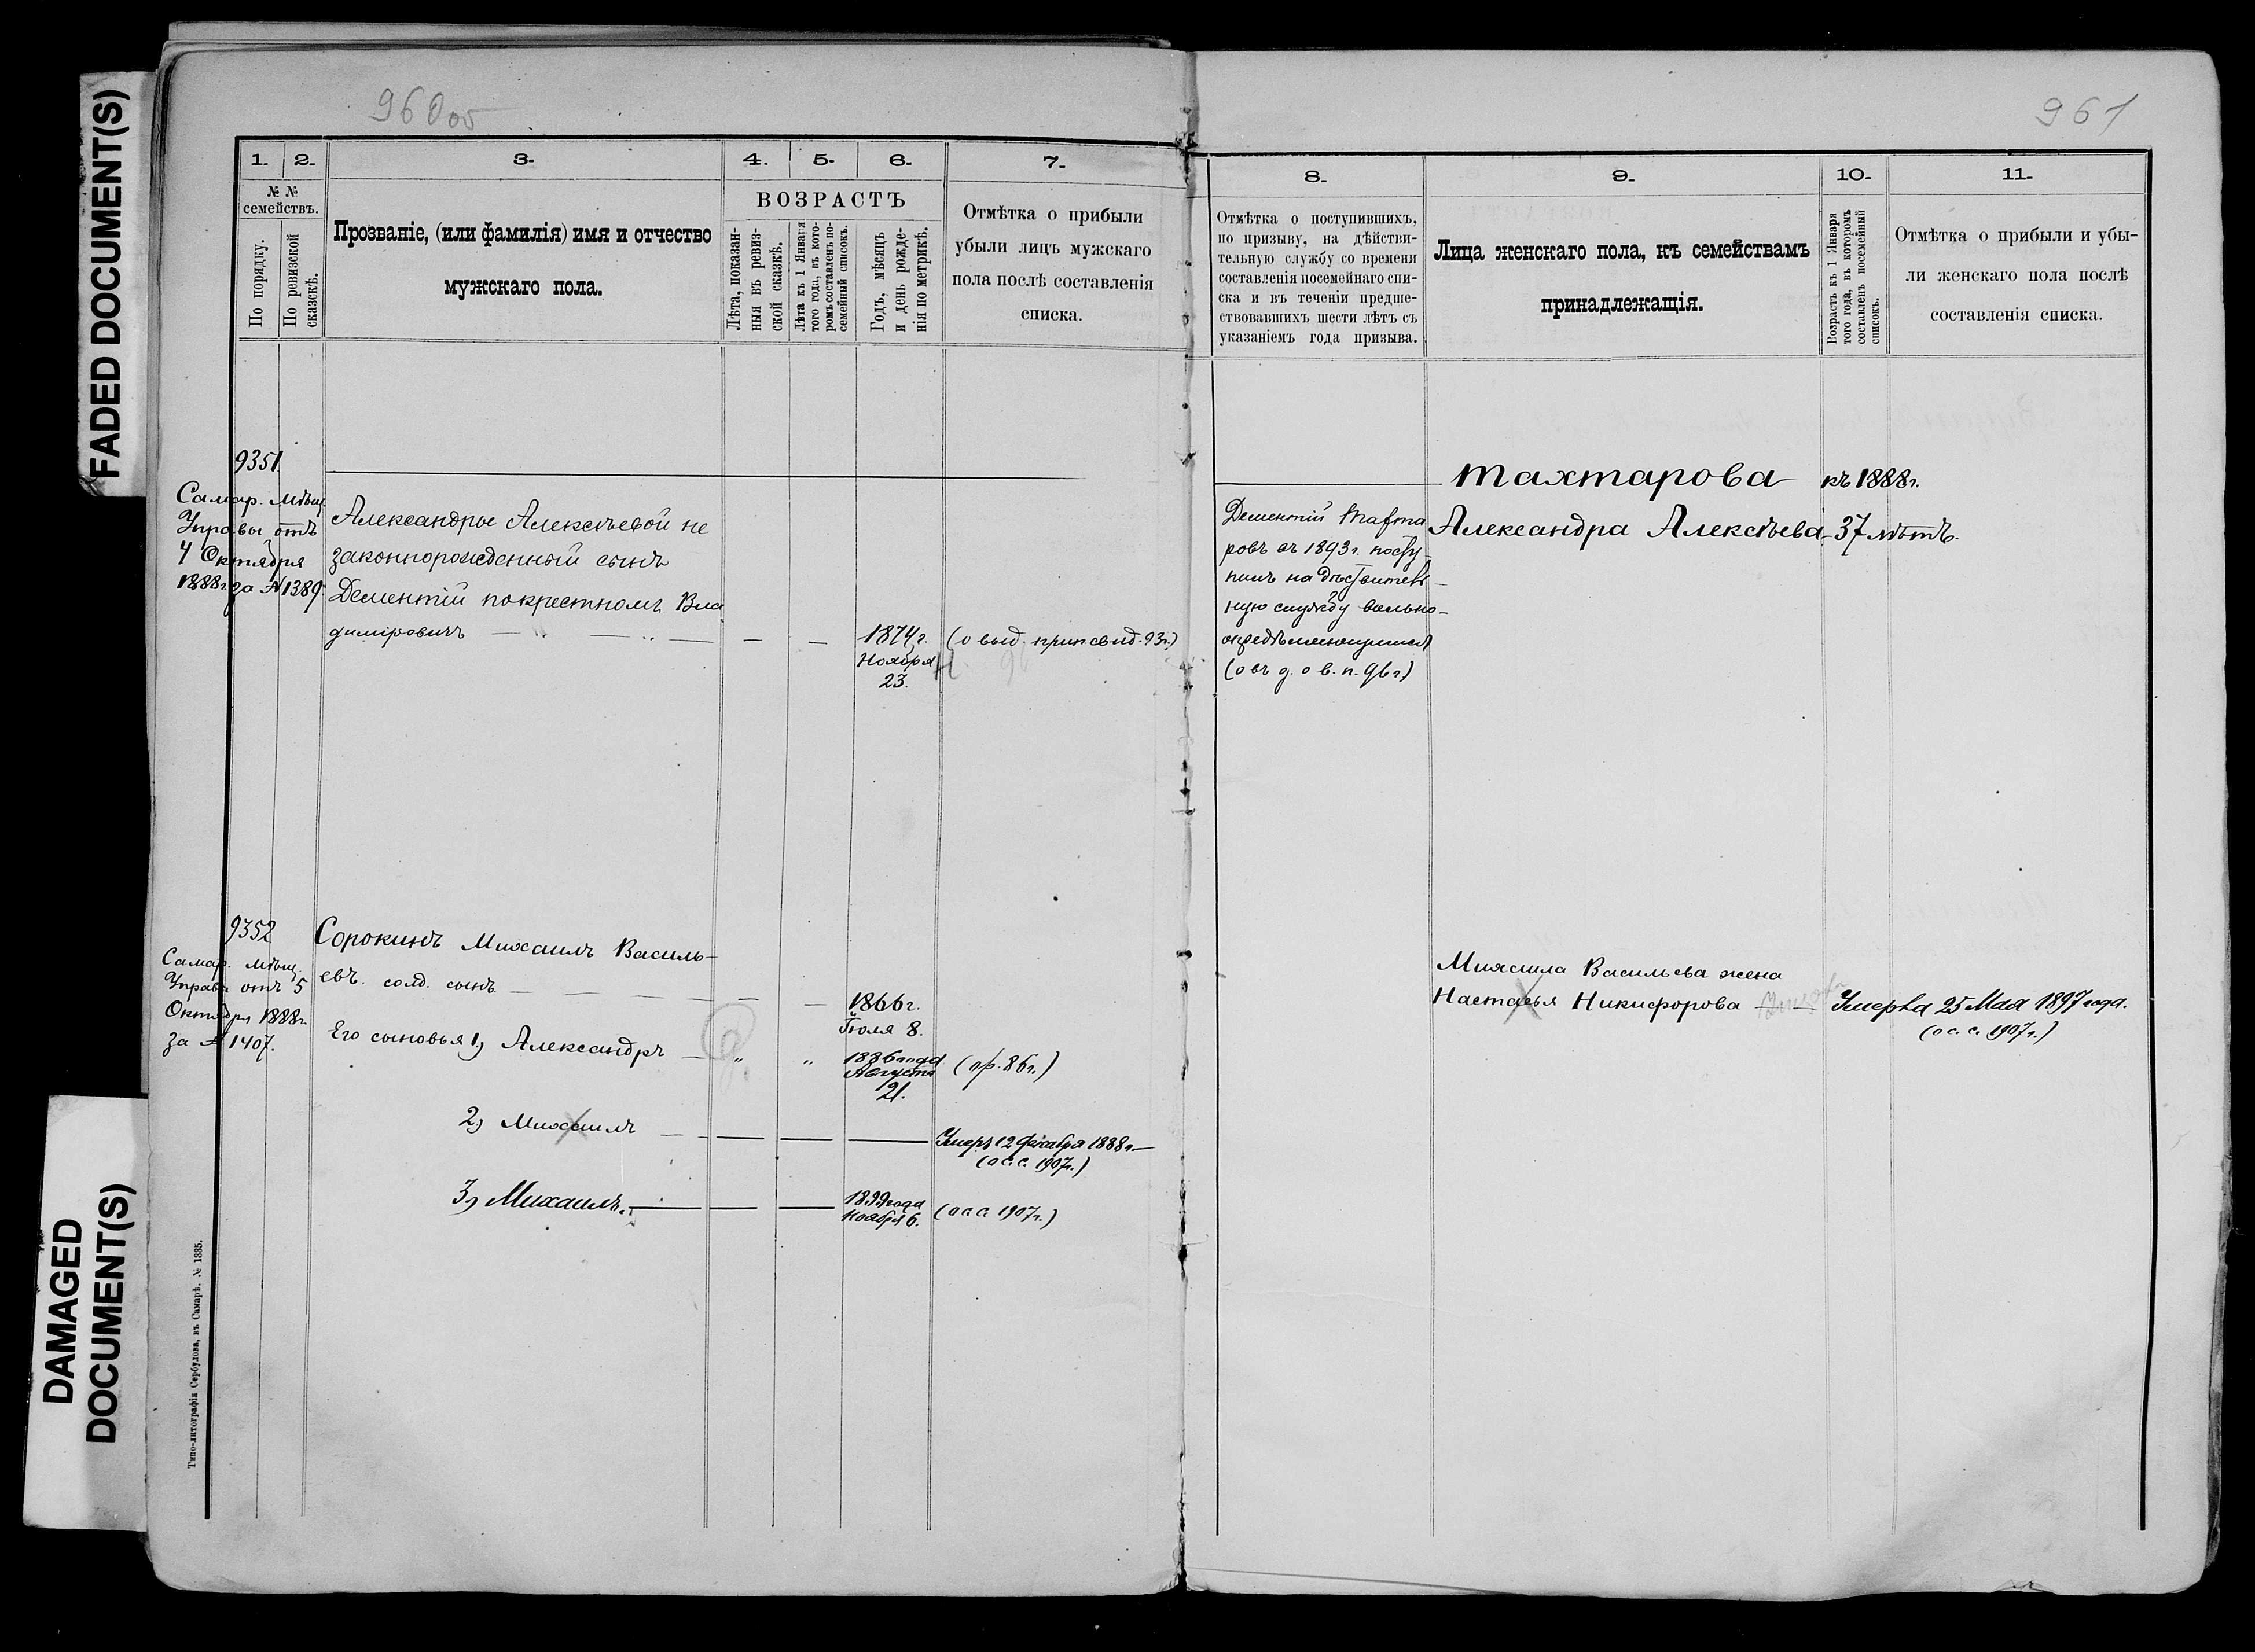 FADED DOCUMENT(S)
DAMAGED
DOCUMENT(S)
960 об
1.
2.
3.
4.
5.
6.
7.
№ №
семействъ.
По порядку.
По ревизской
сказскѣ.
Прозваніе, (или фамилія) имя и отчество
мужскаго пола.
ВОЗРАСТЪ
Лѣта, показан-
ныя въ ревиз-
ской сказкѣ.
Лѣта къ 1 Января
того года, въ кото-
ромъ составленъ по-
семейный списокъ.
Годъ, мѣсяцъ
и день рожде-
нія по метрикѣ.
Отмѣтка о прибыли
убыли лицъ мужскаго
пола послѣ составленія
списка.
9351
Самар. Мѣщ.
Управы отъ
4 Октября
1888г. за № 1389.
Александры Алексѣевой не
законнорожденный сынъ
Дементій покрестномъ Вла
диміровичъ
1874г.
Ноября
23.
(о выд. припсвид. 93г.)
9352
Самар. Мѣщ.
Управы отъ 5
Октября 1888г.
за № 1407.
Сорокинъ Михаилъ Василь-
евъ. солд. сынъ
1866г.
Іюля 8.
Его сыновья 1) Александръ
1886 года
Августа
21.
(пр. 86г.)
2) Михаилъ
Умеръ 12 Декабря 1888г.
(о с.с. 1907г.)
3) Михаилъ.
1899 года
Ноября 6.
(о с.с. 1907г.)
Типо-литографія Сербулова, въ Самарѣ. № 1335.
961
8.
9.
10.
11.
Отмѣтка о поступившихъ,
по призыву, на дѣйстви-
тельную службу со времени
составленія посемейнаго спи-
ска и въ теченіи предше-
ствовавшихъ шести лѣтъ съ
указаніемъ года призыва.
Лица женскаго пола, къ семействамъ
принадлежащія.
Возрастъ къ 1 Января
того года, въ которомъ
составленъ посемейный
списокъ.
Отмѣтка о прибыли и убы-
ли женскаго пола послѣ
составленія списка.
Тахтарова къ 1888г.
Александра Алексѣева 37 лѣтъ.
Дементій Тахта
ровъ въ 1893г. посту
пилъ на дѣствитель-
ную службу вольно-
опредѣляющимся
(объ д. о в. п. 96г)
Михаила Васильева жена
Настасья Никифорова
Умерла 25 Мая 1897 года.
(о с.с. 1907г.)